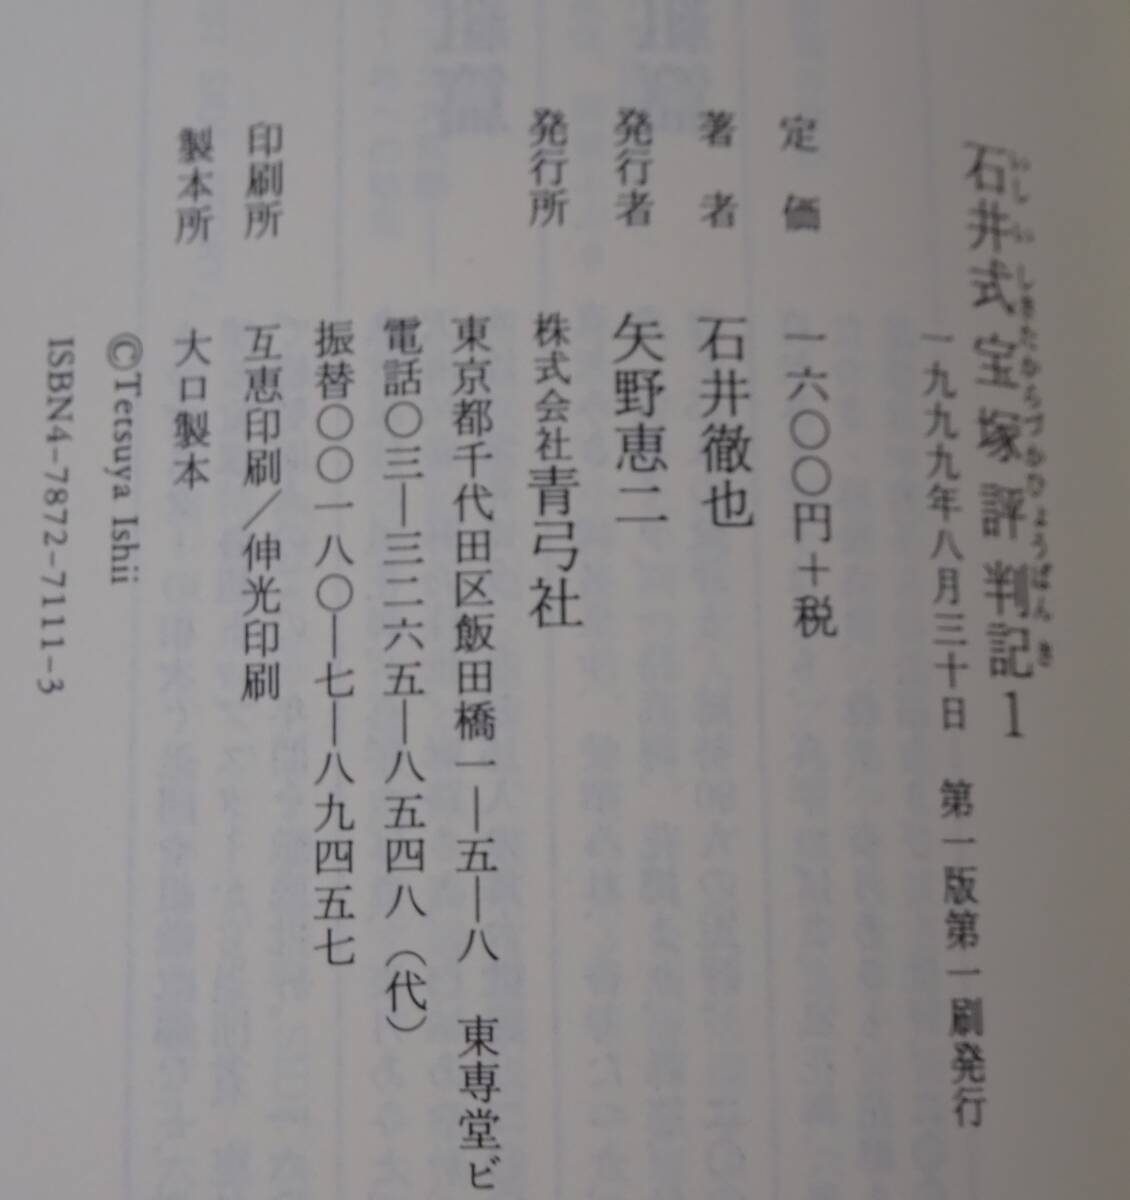 石井式宝塚評判記1
いしいしきたからづかひょうばんき
一九九九年八月三十日　第一版第一刷発行
定　価　一六〇〇円＋税
著　者　石井徹也
発行者　矢野恵二
発行所　株式会社青弓社
東京都千代田区飯田橋一―五―八　東専堂ビ
電話〇三―三二六五―八五四八（代）
振替〇〇一八〇―七―八九四五七
印刷所　互恵印刷／伸光印刷
製本所　大口製本
©Tetsuya Ishii
ISBN4-7872-7111-3